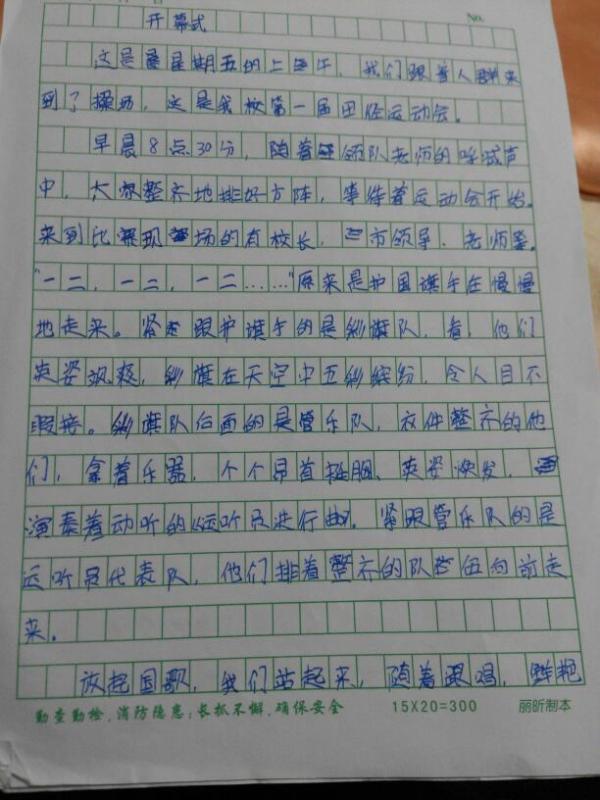 No.
开幕式
这是星期五的上午，我们跟着人群来
到了操场，这是我校第一届田径运动会。
早晨8点30分，随着领队老师的呼喊声
中，大家整齐地排好方阵，等待着运动会开始。
来到比赛现场的有校长，市领导、老师等。
“一二，一二，一二……”原来是护国旗手在慢慢
地走来。紧跟护旗手的是彩旗队，看，他们
英姿飒爽，彩旗在天空中五彩缤纷，令人目不
暇接。彩旗队后面的是管乐队，衣件整齐的他
们，拿着乐器，个个昂首挺胸、英姿焕发，
演奏着动听的《运听员进行曲》。紧跟管乐队的是
运听员代表队，他们排着整齐的队伍向前走
来。
放起国歌，我们站起来，随着跟唱，鲜艳
勤查勤检，消防隐患；长抓不懈，确保安全 15X20=300 丽昕制本